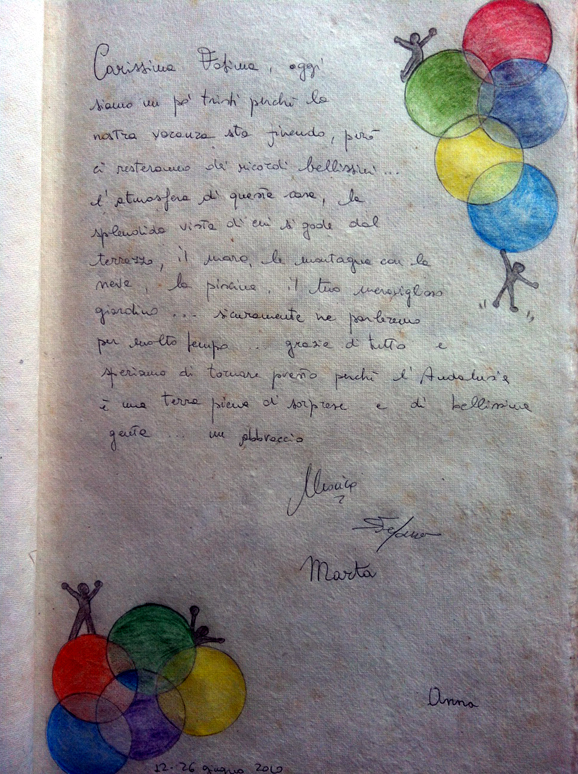 Carissima Fatima, oggi
siamo un po' tristi perché la
nostra vacanza sta finendo, però
ci resteranno dei ricordi bellissimi...
l'atmosfera di questa casa, la
splendida vista di cui si gode dal
terrazzo, il mare, le montagne con la
neve, la piscina, il tuo meraviglioso
giardino... sicuramente ne parleremo
per molto tempo... grazie di tutto e
speriamo di tornare presto perché l'Andalusia
è una terra piena di sorprese e di bellissima
gente... un abbraccio
Monica
Stefano
Marta
Anna
12-26 giugno 2010